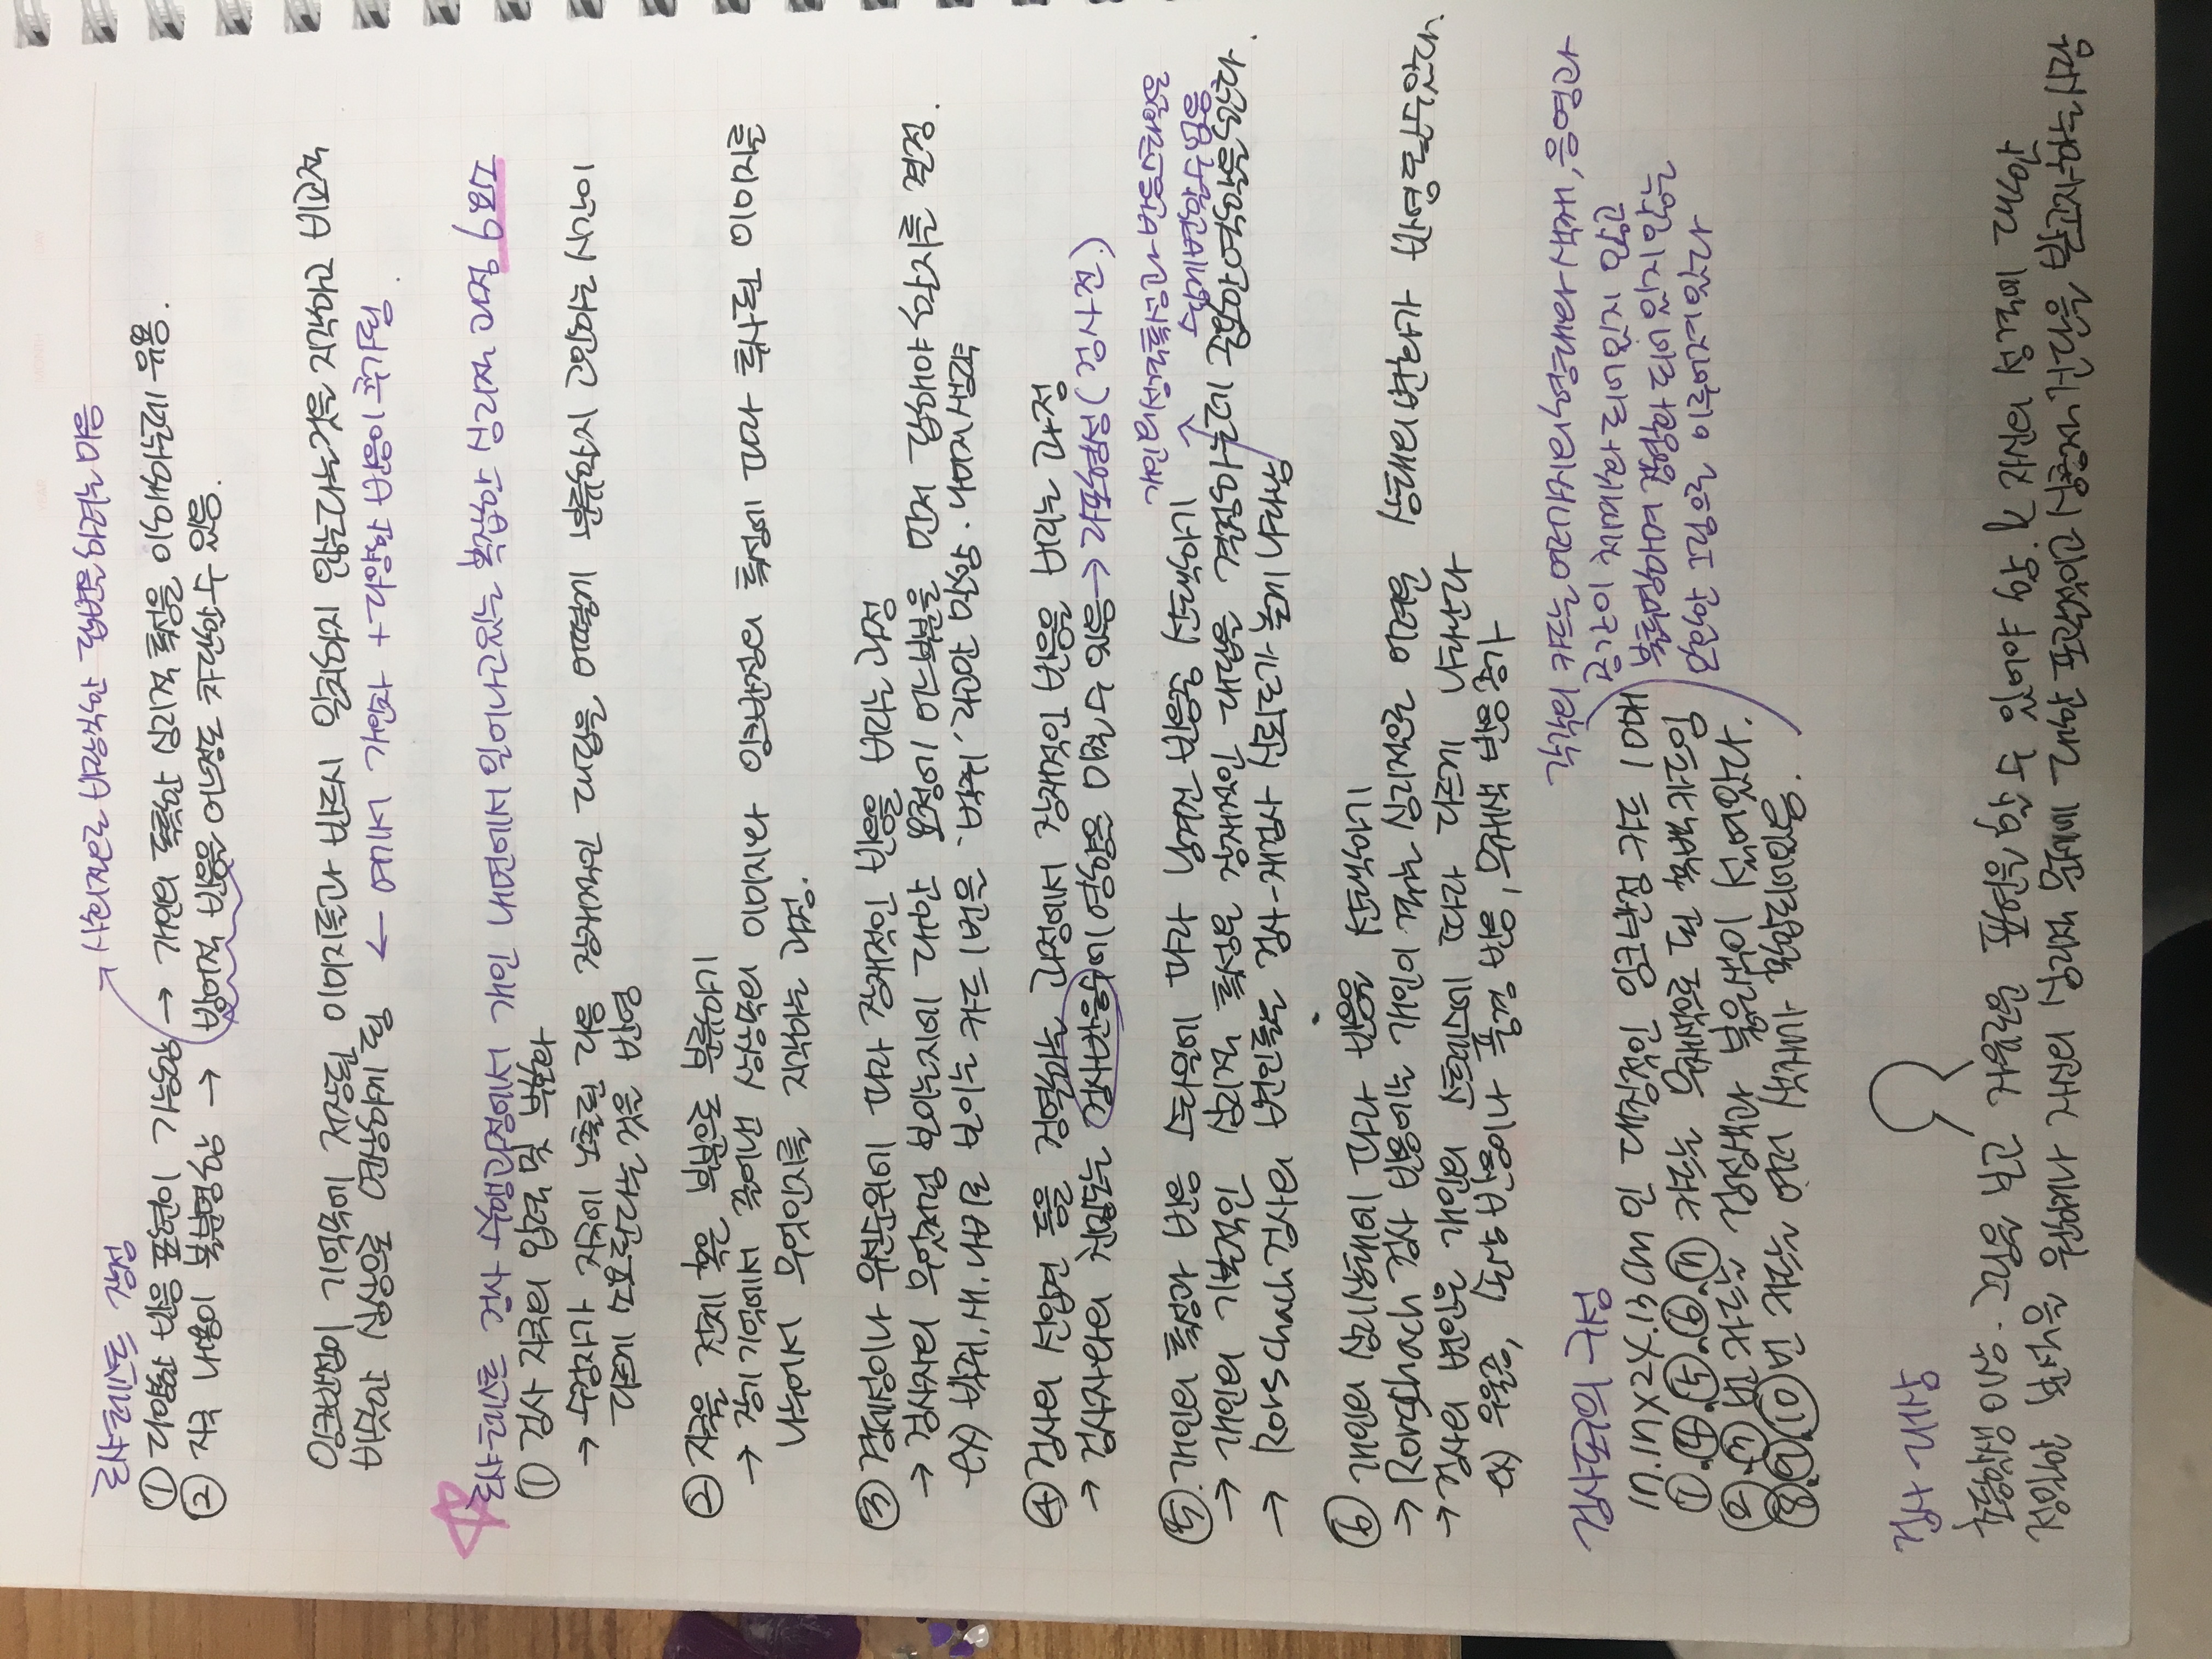 로샤 테스트 장점
→ 사회적으로 바람직한 답변을 하려는 마음
① 다양한 반응 표현이 가능함 → 개인의 독특한 심리적 특성을 이해하는데 유용.
② 자극 내용이 불분명함 → 방어적 반응을 어느정도 차단할 수 있음.
잉크반점이 기억속에 저장된 이미지들과 반드시 일치하지 않는다는것을 지각하고 비교적
비슷한 심상으로 연상하게 됨 ← 여기서 개인차 + 다양한 반응이 추가됨
로샤 테스트 검사 수행과정에서 개인 내면에서 일어나고있는 복잡한 심리적 과정 6요소
① 검사 자극의 입력 및 부호화
→ 수검자가 자극에 노출된 다음 잠재적인 대답을 어떻게 분류할지 고민하는 시간이
다르게 소요된다는 것을 반영
② 자극을 전체 혹은 부분으로 분류하기
→ 장기 기억에서 끌어낸 심상속의 이미지와 잉크반점의 특성에 따라 투사된 이미지를
나누어서 무엇인지를 지각하는 과정.
③ 경제성이나 우선순위에 따라 잠재적인 반응을 버리는 과정
→ 검사자의 무엇처럼 보이는지에 대한 요청에 어느부분을 먼저 답해야 할지를 결정.
ex) 박쥐, 새, 나비로 보이는 카드 1번을 '박쥐' 라고만 말함. 나머지 생략
④ 검사의 선입견 등을 검열하는 과정에서 잠재적인 반응을 버리는 과정
→ 검사자와의 친밀도는 검사반응수에 영향을 미칠 수 있음 → 라포형성 (검사 전.)
개인의 성격특성과 반응스타일은
쉽게 변할 수 없음
⑤. 개인의 특성과 반응 스타일에 따라 남겨진 반응중 선택하기
→ 개인의 기본적인 심리적 특성은 잠재적인 대답을 결정하는데 중요한 역할을 한다.
→ Rorschach 검사의 변인들은 검사-재검사 신뢰도가 높게 나타남
⑥ 개인의 심리상태에 따라 반응을 선택하기
→ Rorschach 검사 반응에는 개인이 겪는 심리적으로 어려운 상태의 변화가 반영될 수 있다.
→ 검사의 변인은 개인의 스트레스에 따라 다르게 나타난다
ex) 우울증, 손상 반응이나 풍경 반응, 무채색 반응 증가
검사도구의 구성
17.17x24.13cm인 대칭적인 잉크반점 카드 10매
①.④.⑤.⑥.⑦ 카드는 무채색으로 된 흑백카드임
②.③번 카드는 검정색과 붉은색이 섞여있다.
⑧.⑨.⑩번 카드는 여러 색채가 혼합되어있음.
각각의 카드는 여러가지의 형태와 색채, 음영과
공간이 체계화 되어있지 않고
불투명하며 정형화 되어있지 않는
모호한 그림으로 이루어져 있다
검사 대상
초등학생 이상. 그림을 보고 자유로운 표현을 할 수 있어야 함. & 자신의 성격에 대한
정밀한 분석을 원하거나 자신의 심리적 문제에 대한 포괄적이고 심층적 진단을 받고자 하는 사람